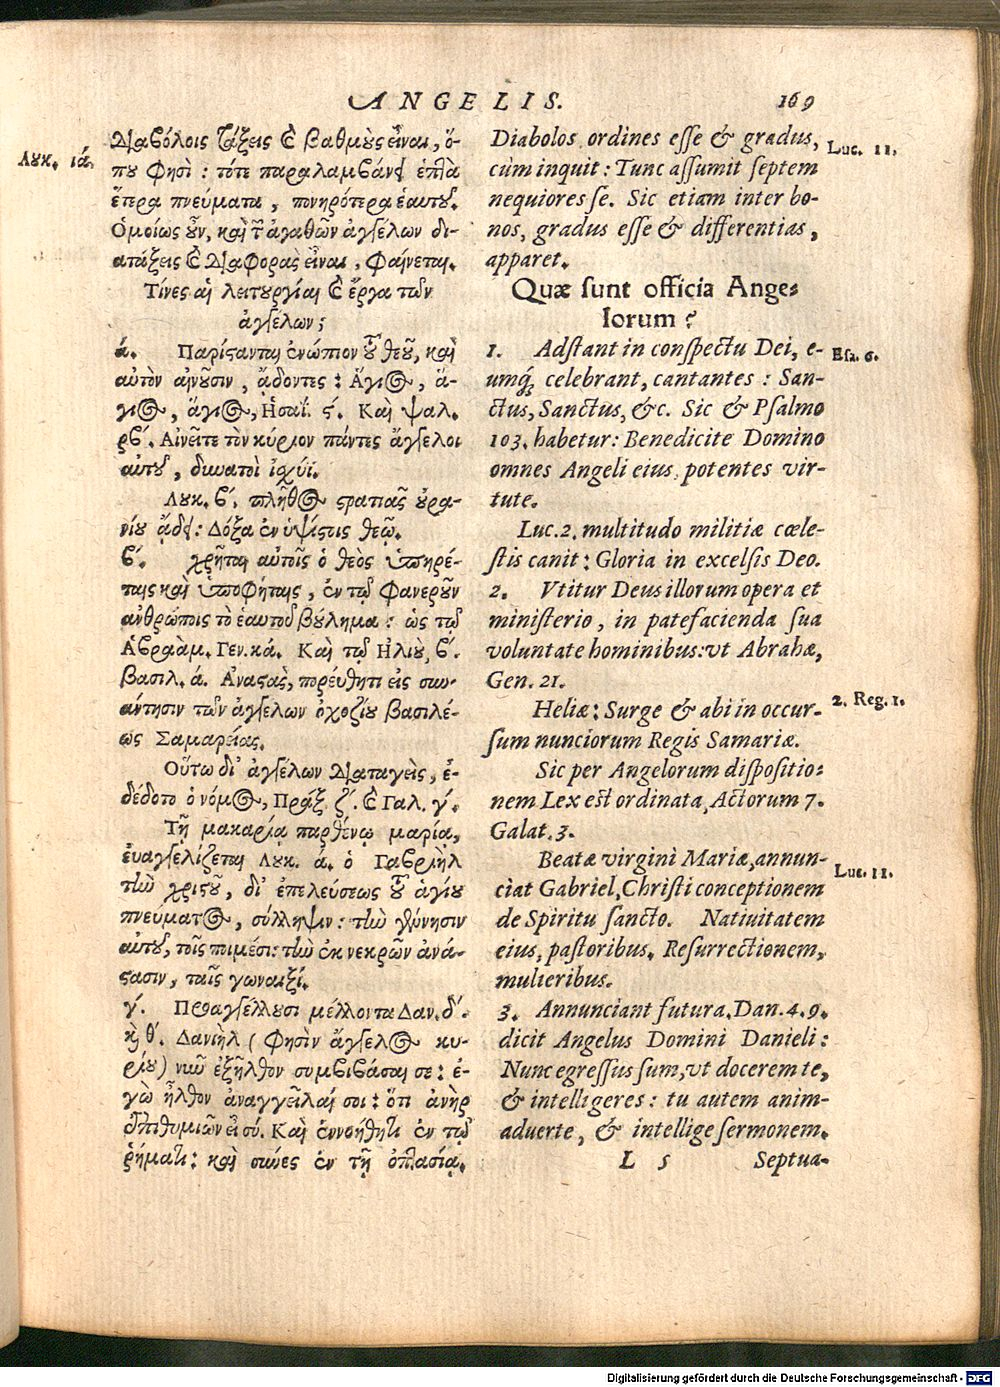 ANGELIS. 169
Λουκ. ιά.
Διαβόλοις τάξεις καὶ βαθμοὺς εἶναι, ὅ-
που φησὶ: τότε παραλαμβάνει ἑπτὰ
ἕτερα πνεύματα, πονηρότερα ἑαυτοῦ.
Ὁμοίως οὖν, καὶ τῶν ἀγαθῶν ἀγγέλων δι-
ατάξεις καὶ διαφορὰς εἶναι, φαίνεται.
Τίνες αἱ λειτουργίαι καὶ ἔργα τῶν
ἀγγέλων;
ά. Παρίστανται ἐνώπιον τοῦ θεοῦ, καὶ
αὐτὸν αἰνοῦσιν, ᾄδοντες: Ἅγιος, ἅ-
γιος, ἅγιος, Ἡσαΐ. ϛ΄. Καὶ ψαλ.
ρβ΄. Αἰνεῖτε τὸν κύριον πάντες ἄγγελοι
αὐτοῦ, δυνατοὶ ἰσχύϊ.
Λουκ. β΄. πλῆθος στρατιᾶς οὐρα-
νίου ᾄδει: Δόξα ἐν ὑψίστοις θεῷ.
β΄. χρῆται αὐτοῖς ὁ θεὸς ὑπηρέ-
ταις καὶ ὑποφήταις, ἐν τῷ φανεροῦν
ἀνθρώποις τὸ ἑαυτοῦ βούλημα: ὡς τῷ
Ἀβραὰμ. Γεν. κά. Καὶ τῷ Ἠλιοὺ, β΄.
βασιλ. ά. Ἀναστὰς, πορεύθητι εἰς συν-
άντησιν τῶν ἀγγέλων ὀχοζίου βασιλέ-
ως Σαμαρείας.
Οὕτω δι' ἀγγέλων διαταγεὶς, ἐ-
δέδοτο ὁ νόμος, Πράξ. ζ΄. καὶ Γαλ. γ΄.
Τῇ μακαρίᾳ παρθένῳ μαρίᾳ,
εὐαγγελίζεται Λουκ. ά. ὁ Γαβριὴλ
τὴν χριστοῦ, δι' ἐπελεύσεως τοῦ ἁγίου
πνεύματος, σύλληψιν: τὴν γέννησιν
αὐτοῦ, τοῖς ποιμέσι: τὴν ἐκ νεκρῶν ἀνά-
στασιν, ταῖς γυναιξί.
γ΄. Προαγγέλλουσι μέλλοντα Δαν. δ΄.
καὶ θ΄. Δανιὴλ (φησὶν ἄγγελος κυ-
ρίου) νῦν ἐξῆλθον συμβιβάσαι σε: ἐ-
γὼ ἦλθον ἀναγγεῖλαί σοι: ὅτι ἀνὴρ
ἐπιθυμιῶν εἶ σύ. Καὶ ἐννοήθητι ἐν τῷ
ῥήματι: καὶ σύνες ἐν τῇ ὀπτασίᾳ.
Diabolos ordines esse & gradus,
Luc. 11.
cùm inquit: Tunc assumit septem
nequiores se. Sic etiam inter bo-
nos, gradus esse & differentias,
apparet.
Quæ sunt officia Ange-
lorum?
1. Adstant in conspectu Dei, e-
Esa. 6.
umq́; celebrant, cantantes: San-
ctus, Sanctus, &c. Sic & Psalmo
103. habetur: Benedicite Domino
omnes Angeli eius, potentes vir-
tute.
Luc. 2. multitudo militiæ cœle-
stis canit: Gloria in excelsis Deo.
2. Vtitur Deus illorum opera et
ministerio, in patefacienda sua
voluntate hominibus: vt Abrahæ,
Gen. 21.
Heliæ: Surge & abi in occur-
2. Reg. 1.
sum nunciorum Regis Samariæ.
Sic per Angelorum dispositio-
nem Lex est ordinata, Actorum 7.
Galat. 3.
Beatæ virgini Mariæ, annun-
Luc. 11.
ciat Gabriel, Christi conceptionem
de Spiritu sancto. Natiuitatem
eius, pastoribus. Resurrectionem,
mulieribus.
3. Annunciant futura. Dan. 4. 9.
dicit Angelus Domini Danieli:
Nunc egressus sum, vt docerem te,
& intelligeres: tu autem anim-
aduerte, & intellige sermonem.
L 5 Septua-
Digitalisierung gefördert durch die Deutsche Forschungsgemeinschaft - DFG